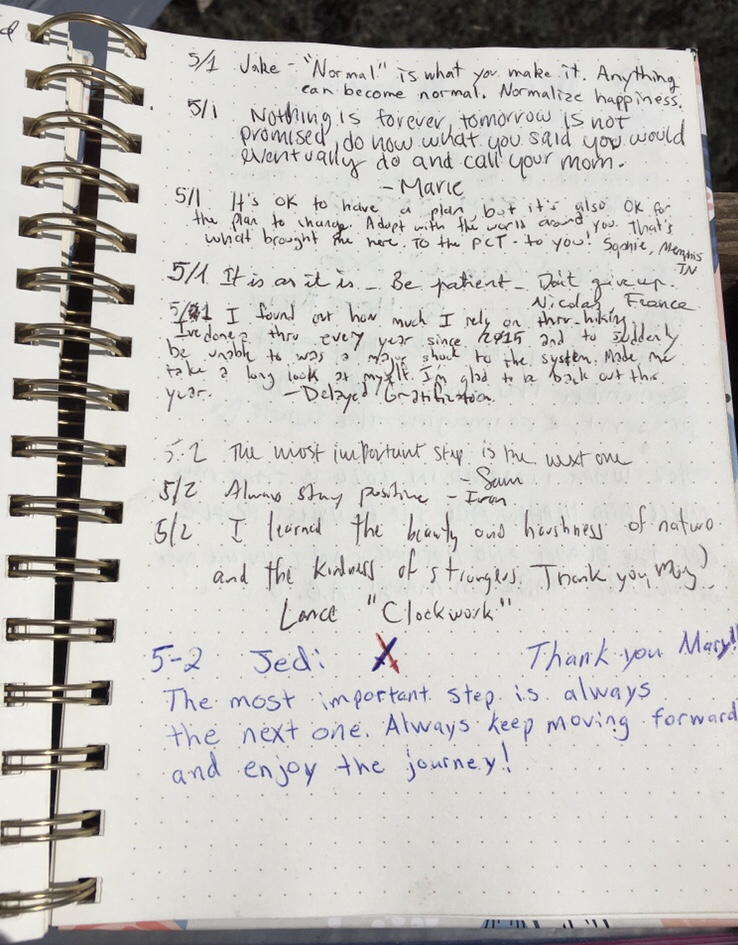 5/1 Jake - "Normal" is what you make it. Anything
can become normal. Normalize happiness.
5/1 Nothing is forever, tomorrow is not
promised, do now what you said you would
eventually do and call your mom.
- Marie
5/1 It's OK to have a plan, but it's also OK for
the plan to change. Adapt with the world around you. That's
what brought me here. To the PCT - to you! Sophie, Memphis
TN
5/1 It is as it is - Be patient - Don't give up.
Nicolas, France
5/1 I found out how much I rely on thru-hiking
I've done a thru every year since 2015 and to suddenly
be unable to was a major shock to the system. Made me
take a long look at myself. I'm glad to be back out this
year. - Delayed Gratification
5-2 The most important step is the next one
- Sam
5/2 Always stay positive - Ivan
5/2 I learned the beauty and harshness of nature
and the kindness of strangers. Thank you, Mary!
Lance "Clockwork"
5-2 Jedi X Thank you Mary!!
The most important step is always
the next one. Always keep moving forward
and enjoy the journey!